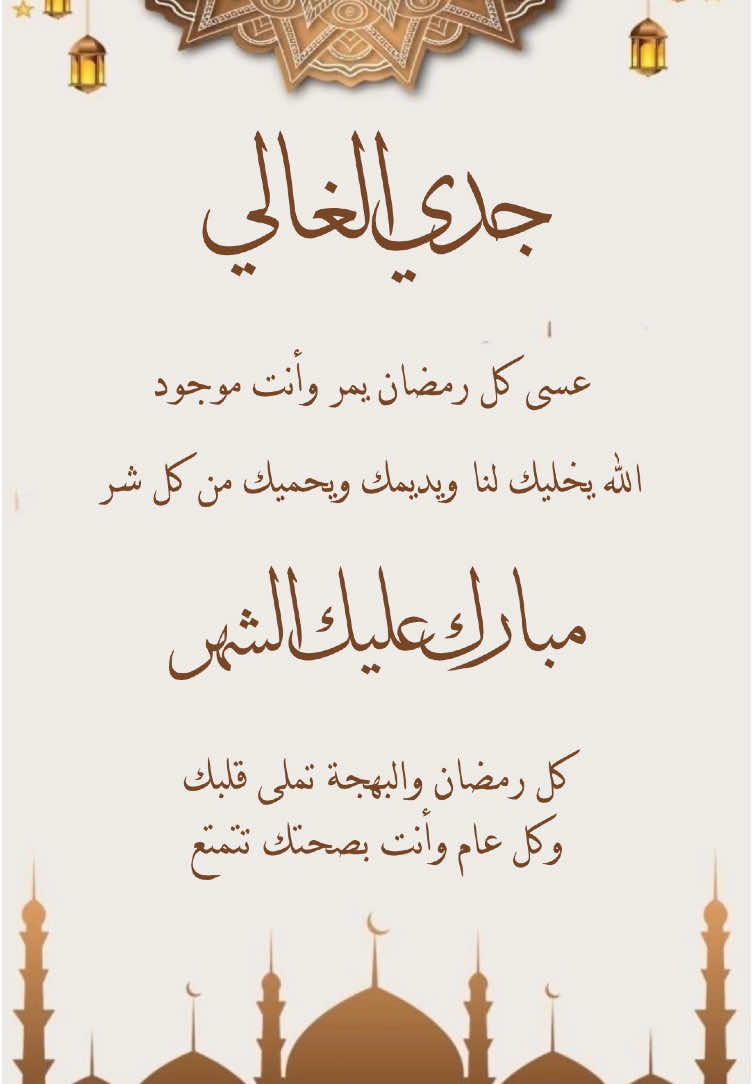 جدي الغالي
عسى كل رمضان يمر وأنت موجود
الله يخليك لنا ويديمك ويحميك من كل شر
مبارك عليك الشهر
كل رمضان والبهجة تملى قلبك
وكل عام وأنت بصحتك تتمتع